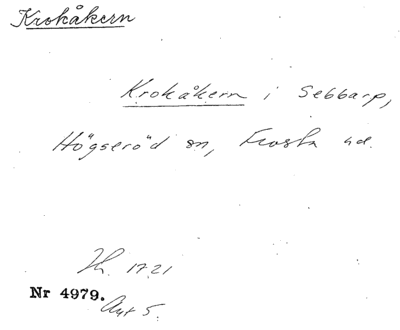 Krokåkern
Krokåkern i Sebbarp,
Högseröd sn, Frosta hd.
Jb. 1721
Nr 4979.
Avt 5.